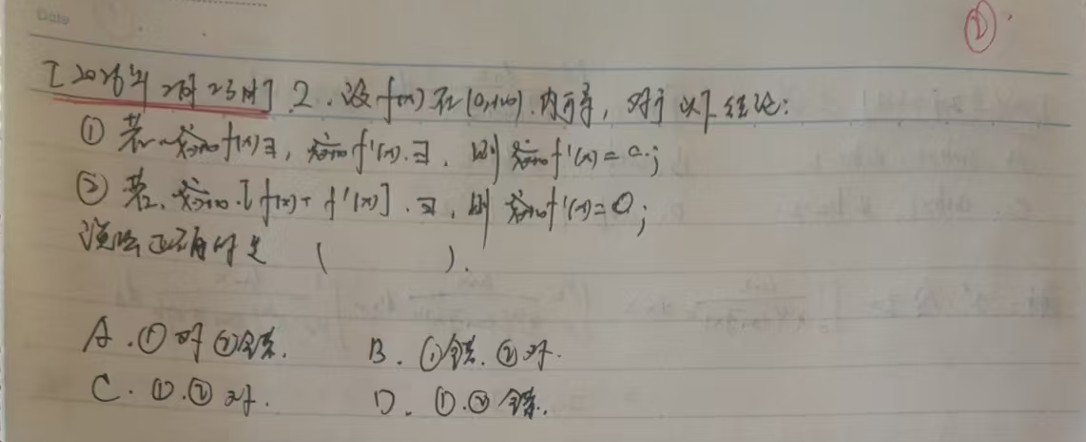 Date
②
[2026年2月23日] 2. 设f(x)在(0,+∞)内可导, 对于以下结论:
① 若 lim x→+∞ f(x)∃, lim x→+∞ f'(x).∃. 则 lim x→+∞ f'(x)=0.;
② 若. lim x→+∞.[f(x)+f'(x)].∃, 则 lim x→+∞ f'(x)=0;
正确的是 ( ).
A.①对②错. B. ①错.②对.
C. ①.②对. D. ①.②错.